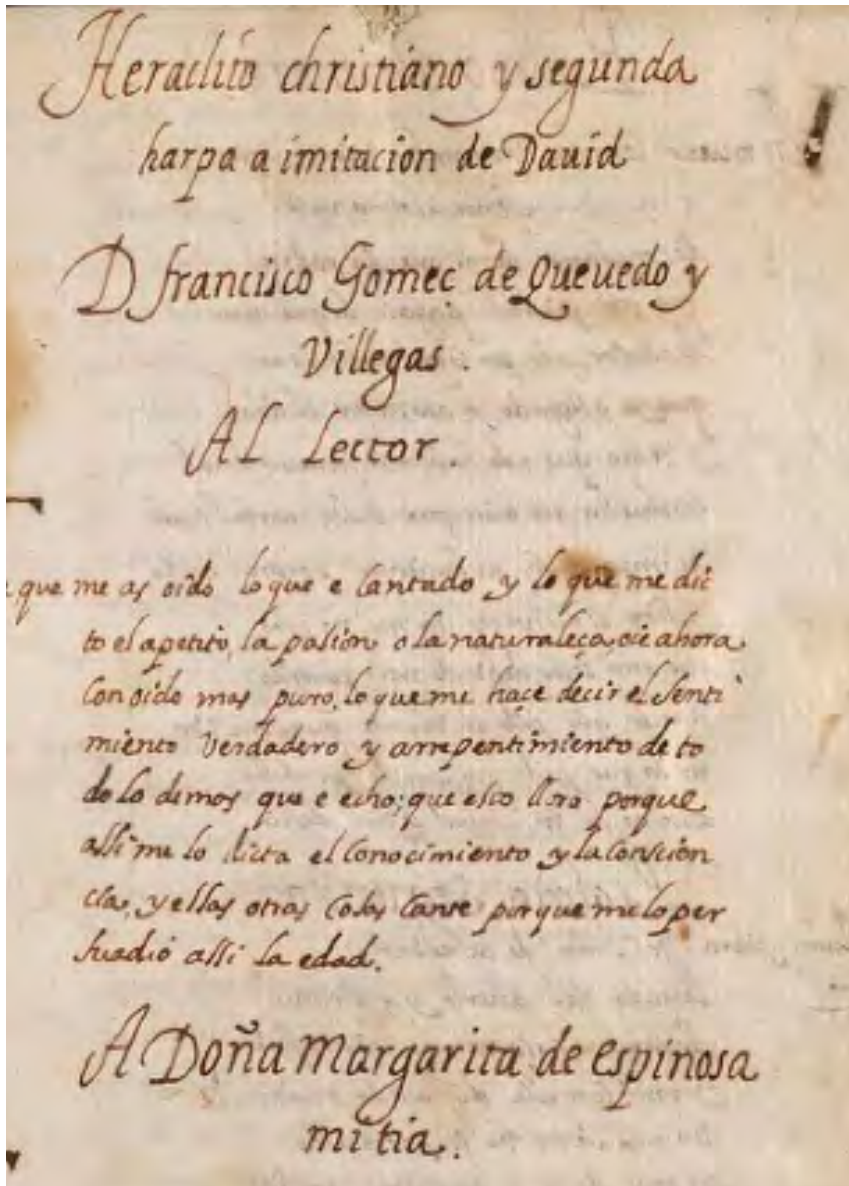 Heraclito christiano y segunda
harpa a imitacion de Dauid
D francisco Gomec de Queuedo y
Villegas.
Al Lector
que me as oido lo que e cantado y lo que me dic
to el apetito, la pasion o la naturaleça, oie ahora
con oido mas puro, lo que me hace decir el senti
miento verdadero y arrepentimiento de to
do lo demas que e echo; que esto lloro porque
assi me lo dicta el conocimiento y la conscien
cia, y essas otras cosas cante porque me lo per
suadio assi la edad.
A Doña Margarita de espinosa
mi tia.